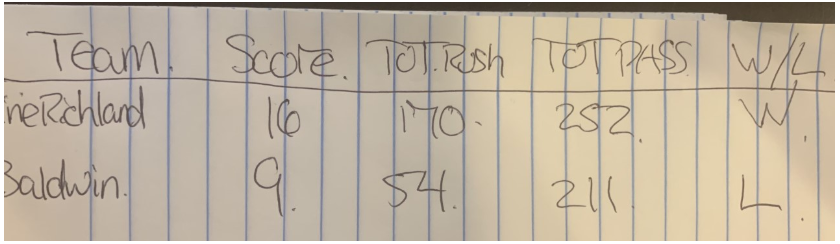 Team. Score. TOT.Rush TOT PASS W/L
neRichland 16 170. 252. W.
Baldwin. 9. 54. 211 L.